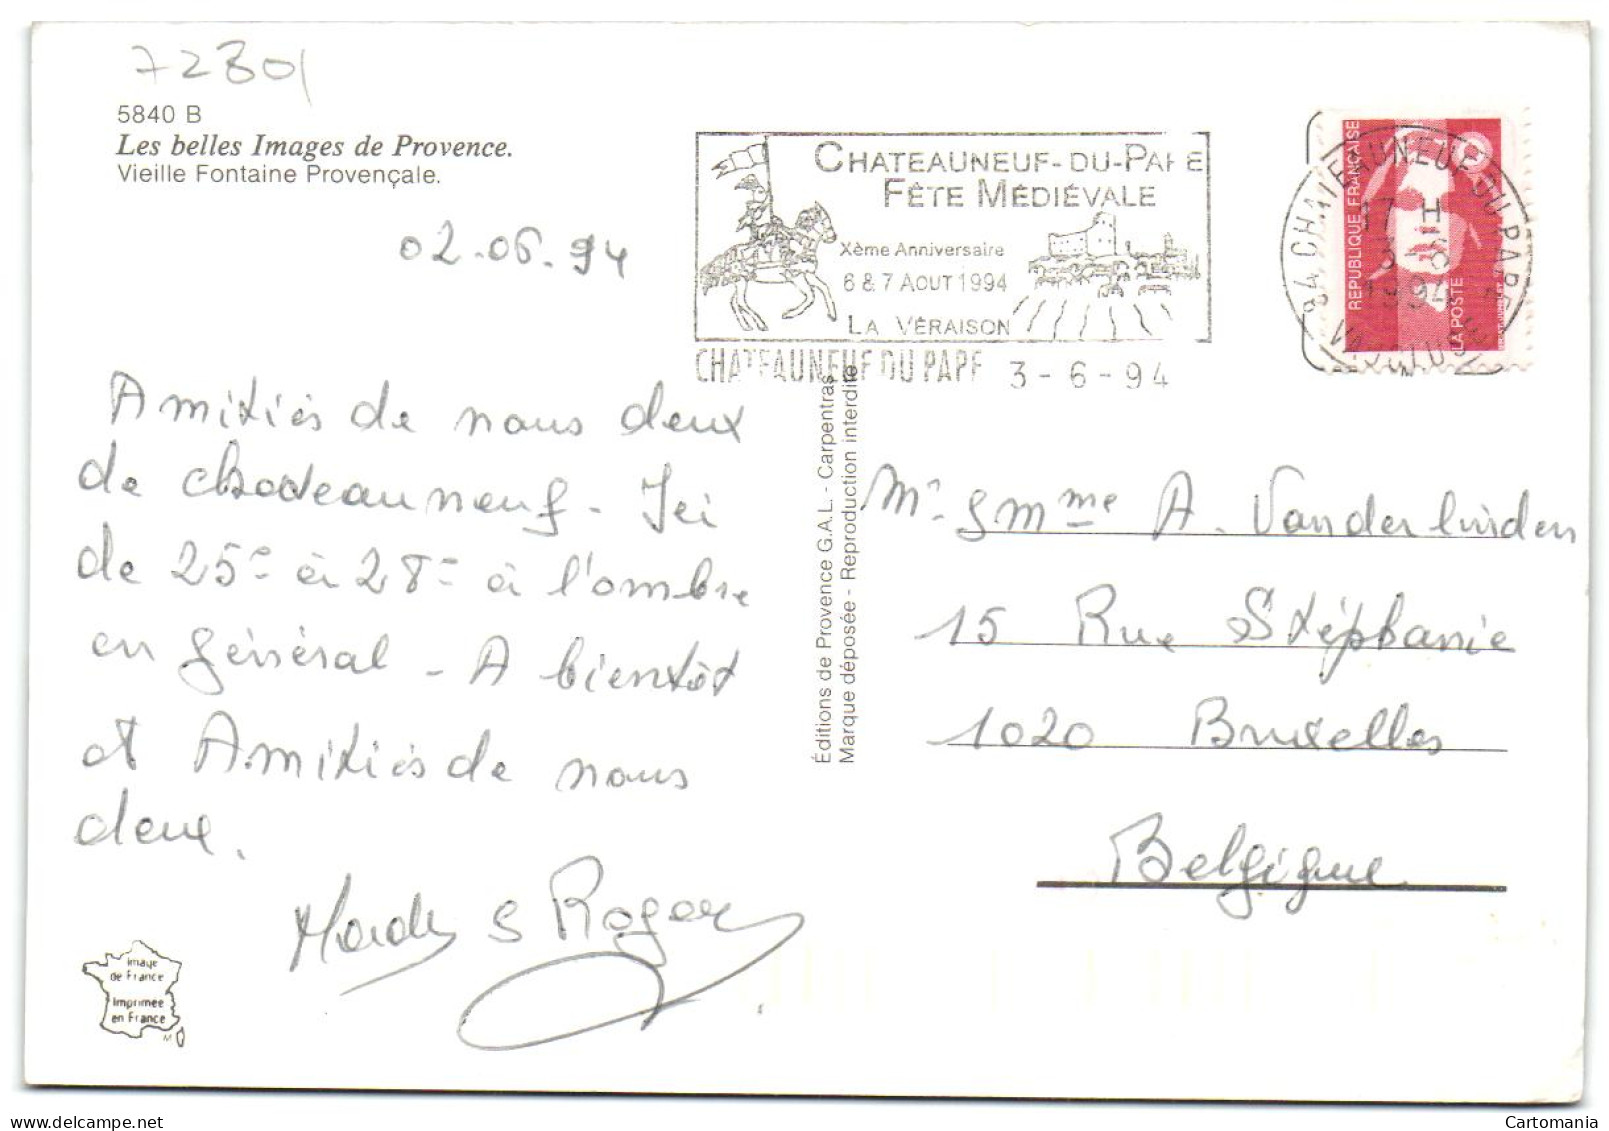 72801
5840 B
Les belles Images de Provence.
Vieille Fontaine Provençale.
02.06.94
CHATEAUNEUF-DU-PAPE
FÊTE MÉDIÉVALE
Xème Anniversaire
6 & 7 AOUT 1994
LA VÉRAISON
CHATEAUNEUF DU PAPE 3-6-94
RÉPUBLIQUE FRANÇAISE
LA POSTE
84 CHATEAUNEUF DU PAPE
17 H
3 6
1994
VAUCLUSE
Amitiés de nous deux
de chateauneuf - Ici
de 25° à 28° à l'ombre
en général - A bientôt
et Amitiés de nous
deux.
& Roger
Éditions de Provence G.A.L. - Carpentras
Marque déposée - Reproduction interdite
Mr & mme A. Vanderlinden
15 Rue Stéphanie
1020 Bruxelles
Belgique
Image
de France
Imprimée
en France
Cartomania